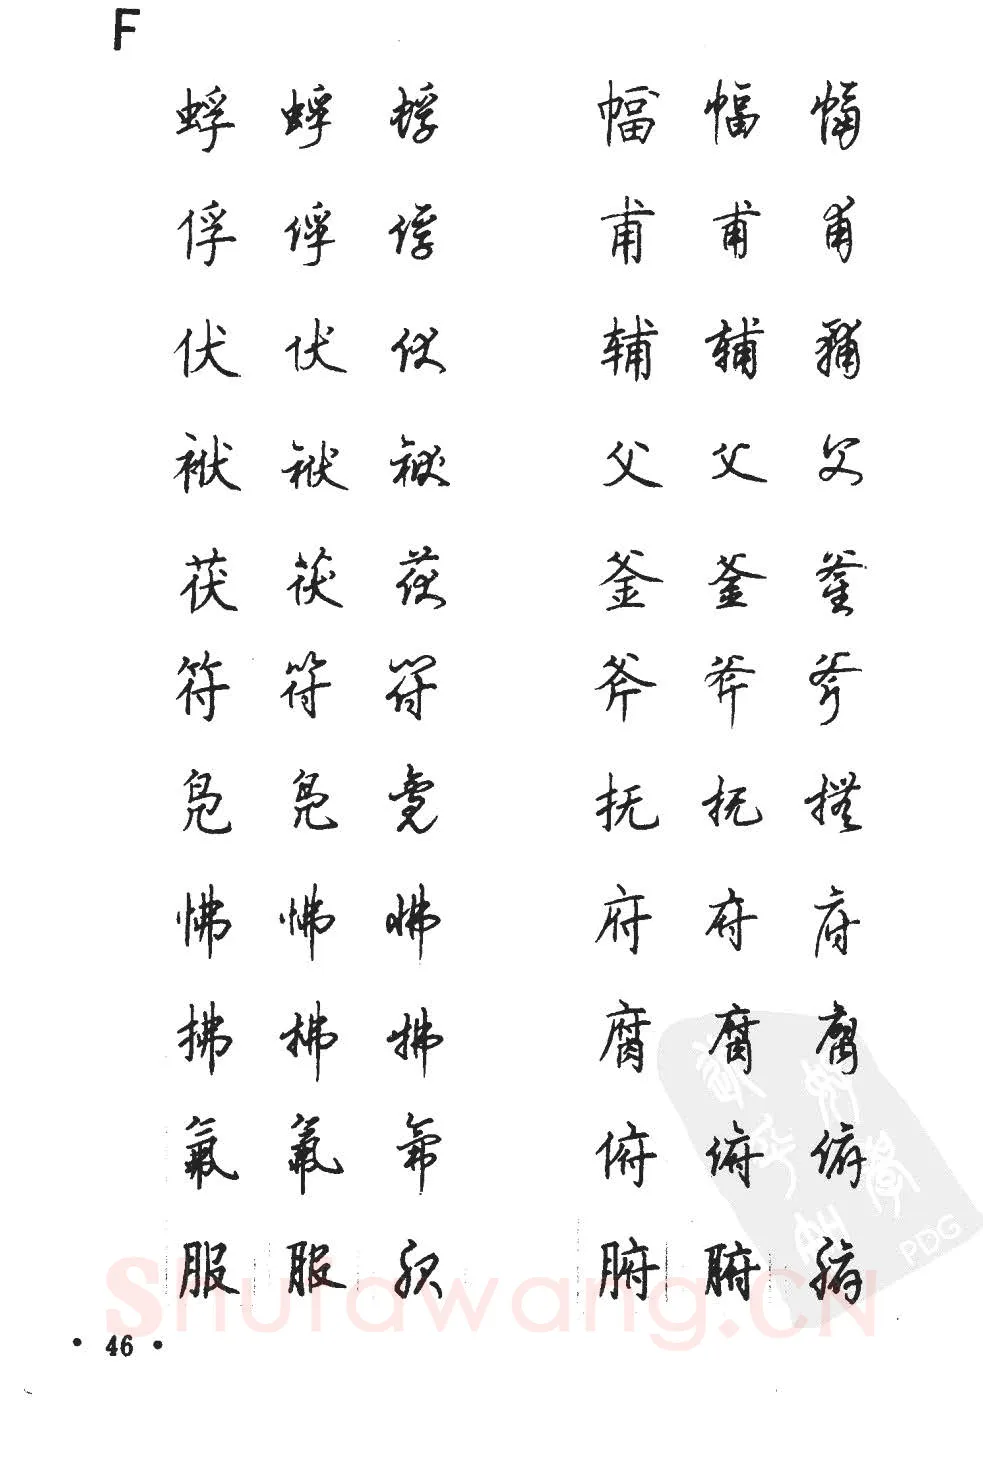 F
蜉 蜉 蜉 幅 幅 幅
俘 俘 俘 甫 甫 甫
伏 伏 伏 辅 辅 辅
袱 袱 袱 父 父 父
茯 茯 茯 釜 釜 釜
符 符 符 斧 斧 斧
凫 凫 凫 抚 抚 抚
怫 怫 怫 府 府 府
拂 拂 拂 腐 腐 腐
氟 氟 氟 俯 俯 俯
服 服 服 腑 腑 腑
• 46 •
Shufawang.CN
PDG